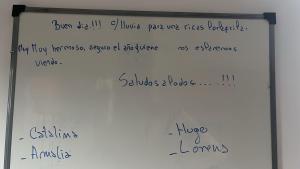 Buen dia.!!! c/lluvia para una ricas tortafrita.
Muy Muy hermoso, seguro el año q viene nos estaremos
viendo.
Saludos a todos....!!!
- Catalina
- Amalia
- Hugo
- Lorena